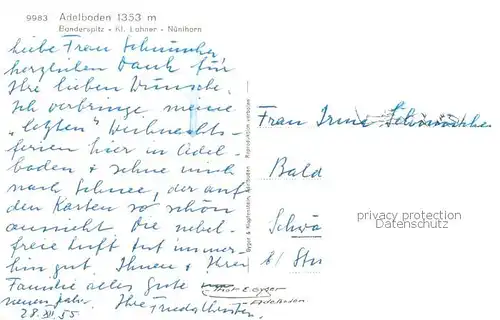 9983 Adelboden 1353 m
Bonderspitz - Kl. Lohner - Nünihorn
Liebe Frau Schumacher
herzlichen Dank für
Ihre lieben Wünsche.
Ich verbringe meine
"letzten" Weihnachts-
ferien hier in Adel-
boden & sehne mich
nach Schnee, der auf
den Karten so schön
aussieht. Die nebel-
freie Luft tut immer-
hin gut. Ihnen & Ihrer
Familie alles Gute
neuen Jahr. Ihre Frieda
28.XII.55
Gyger & Klopfenstein, Adelboden Reproduktion verboten
Frau Irene
Bald
Schwa
b/ Stu
privacy protection
Datenschutz
Phot E. Gyger
Adelboden